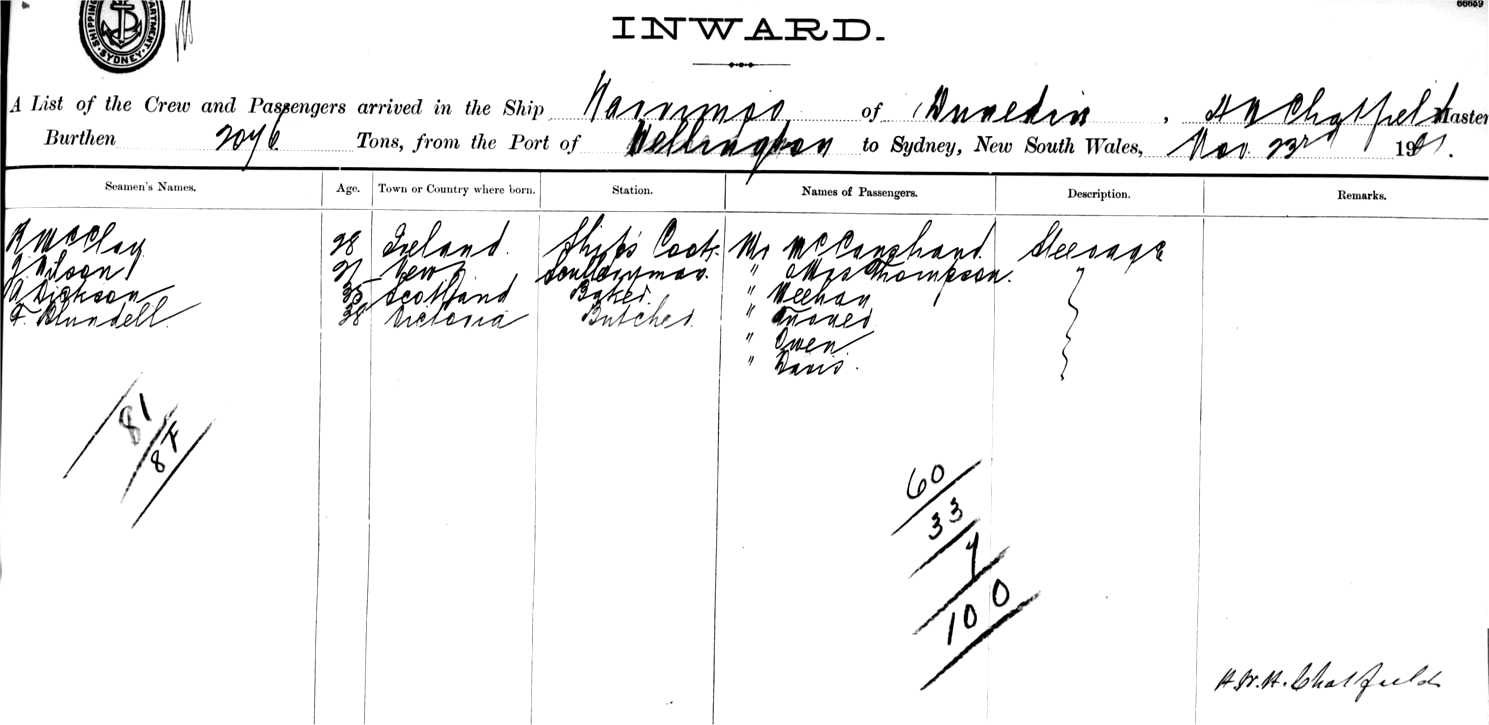 66659
SHIPPING DEPARTMENT. SYDNEY
INWARD.
A List of the Crew and Passengers arrived in the Ship of Dunedin, Chatfield Master
Burthen 2076 Tons, from the Port of Wellington to Sydney, New South Wales, Nov 23rd 1901.
Seamen's Names. Age. Town or Country where born. Station. Names of Passengers. Description. Remarks.
28 Ireland. Ship's Cook. Mr Steerage
J Wilson 21 New Z " Mrs Thompson.
A Dickson 35 Scotland Baker " Meehan
F. Blundell 38 Victoria Butcher "
" Owen
" Davis.
81
60
33
7
100
H.W.H. Chatfield